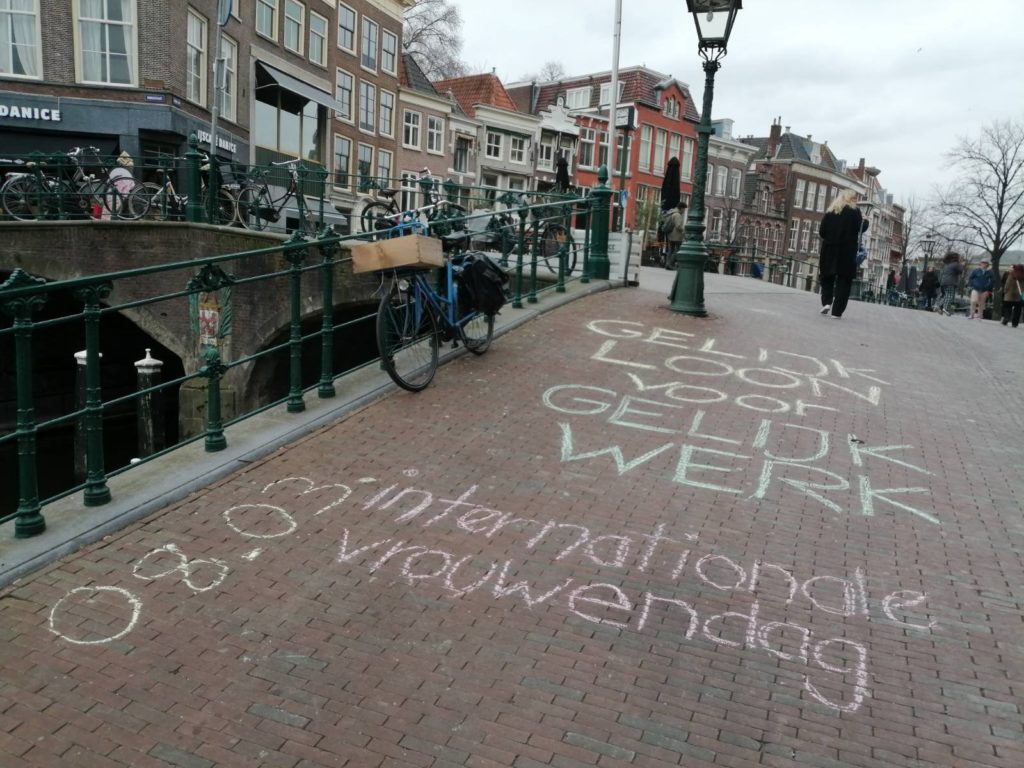 DANICE
IJSCAFÉ DANICE
GELIJK
LOON
voor
GELIJK
WERK
08.03. internationale
vrouwendag